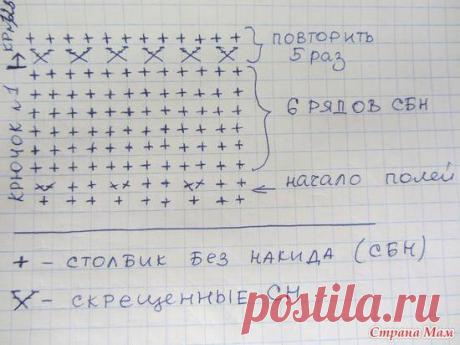 ПОВТОРИТЬ
5 РАЗ
6 РЯДОВ СБН
НАЧАЛО ПОЛЕЙ
КРЮЧОК №1
+ - СТОЛБИК БЕЗ НАКИДА (СБН)
- СКРЕЩЕННЫЕ СН
postila.ru
Страна Мам